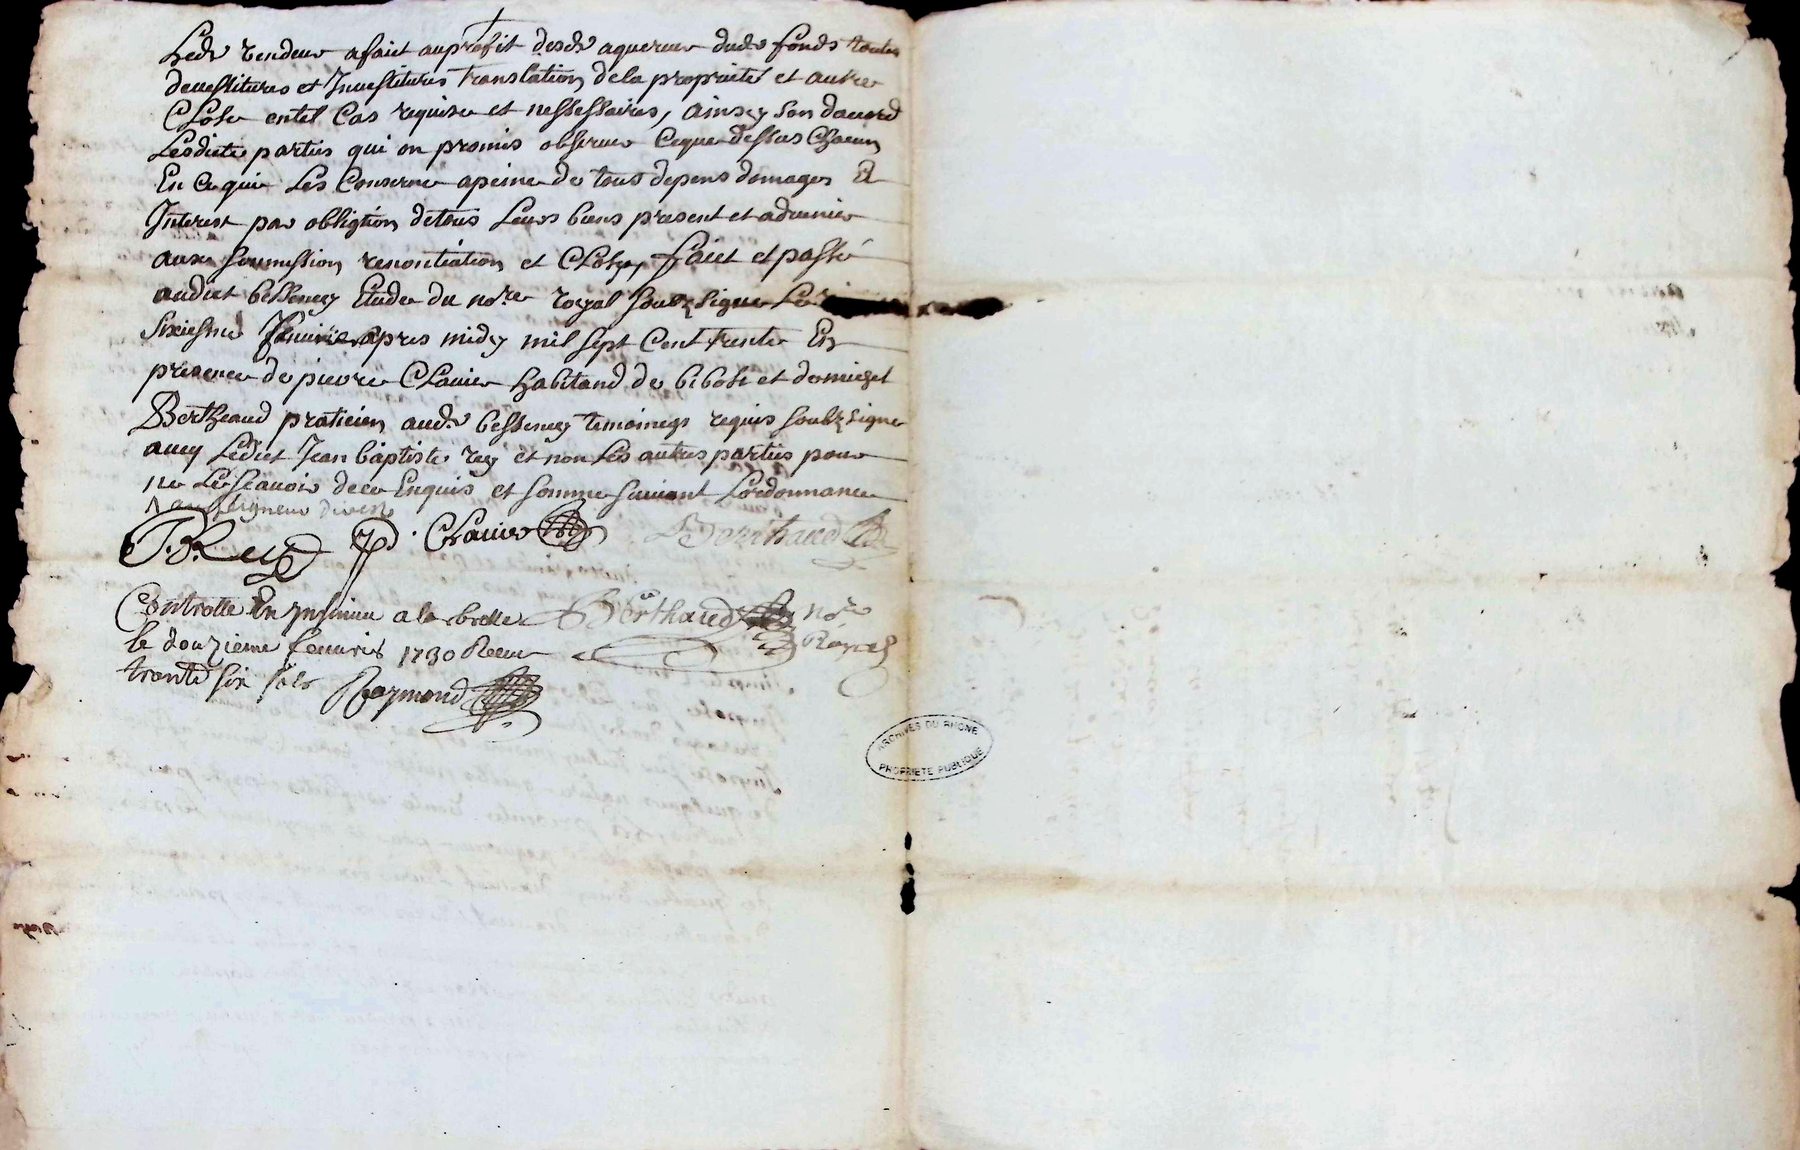 Ledt vendeur afaict auprofit desdt aquereur dudt fonds toutes
devestitures et Jnvestitures translation de la proprieté et autre
Closes entel Cas requise et nessessaires, ainsey son dacord
Lesdicte parties qui on promis observer Ceque dessus Chacun
En Cequi Les Conserne apeine de tous depens domages Et
Interest par obligtion detous Leurs biens present et advenir
aux soumission renontiation et Closes, faict et passé
audict bessenay Etude du nore royal soubzsigne Le
sixiesme Janvier apres midy mil sept Cent trente En
presence de pierre Clavier habitand de bibost et de michel
Bertheaud praticien audt bessenay temoings requis soubzsigne
avec Ledict Jean baptiste rey et non Les autres parties pour
ne Le scavoir de ce Enquis et somme suivant Lordonnance
J.B. Rey P. Clavier Berthaud
Controlle En Insinué a la brelle Berthaud nore
le douzieme Janvier 1730 Receu Royal
trente six sols Raymond
ARCHIVES DU RHONE
PROPRIETE PUBLIQUE